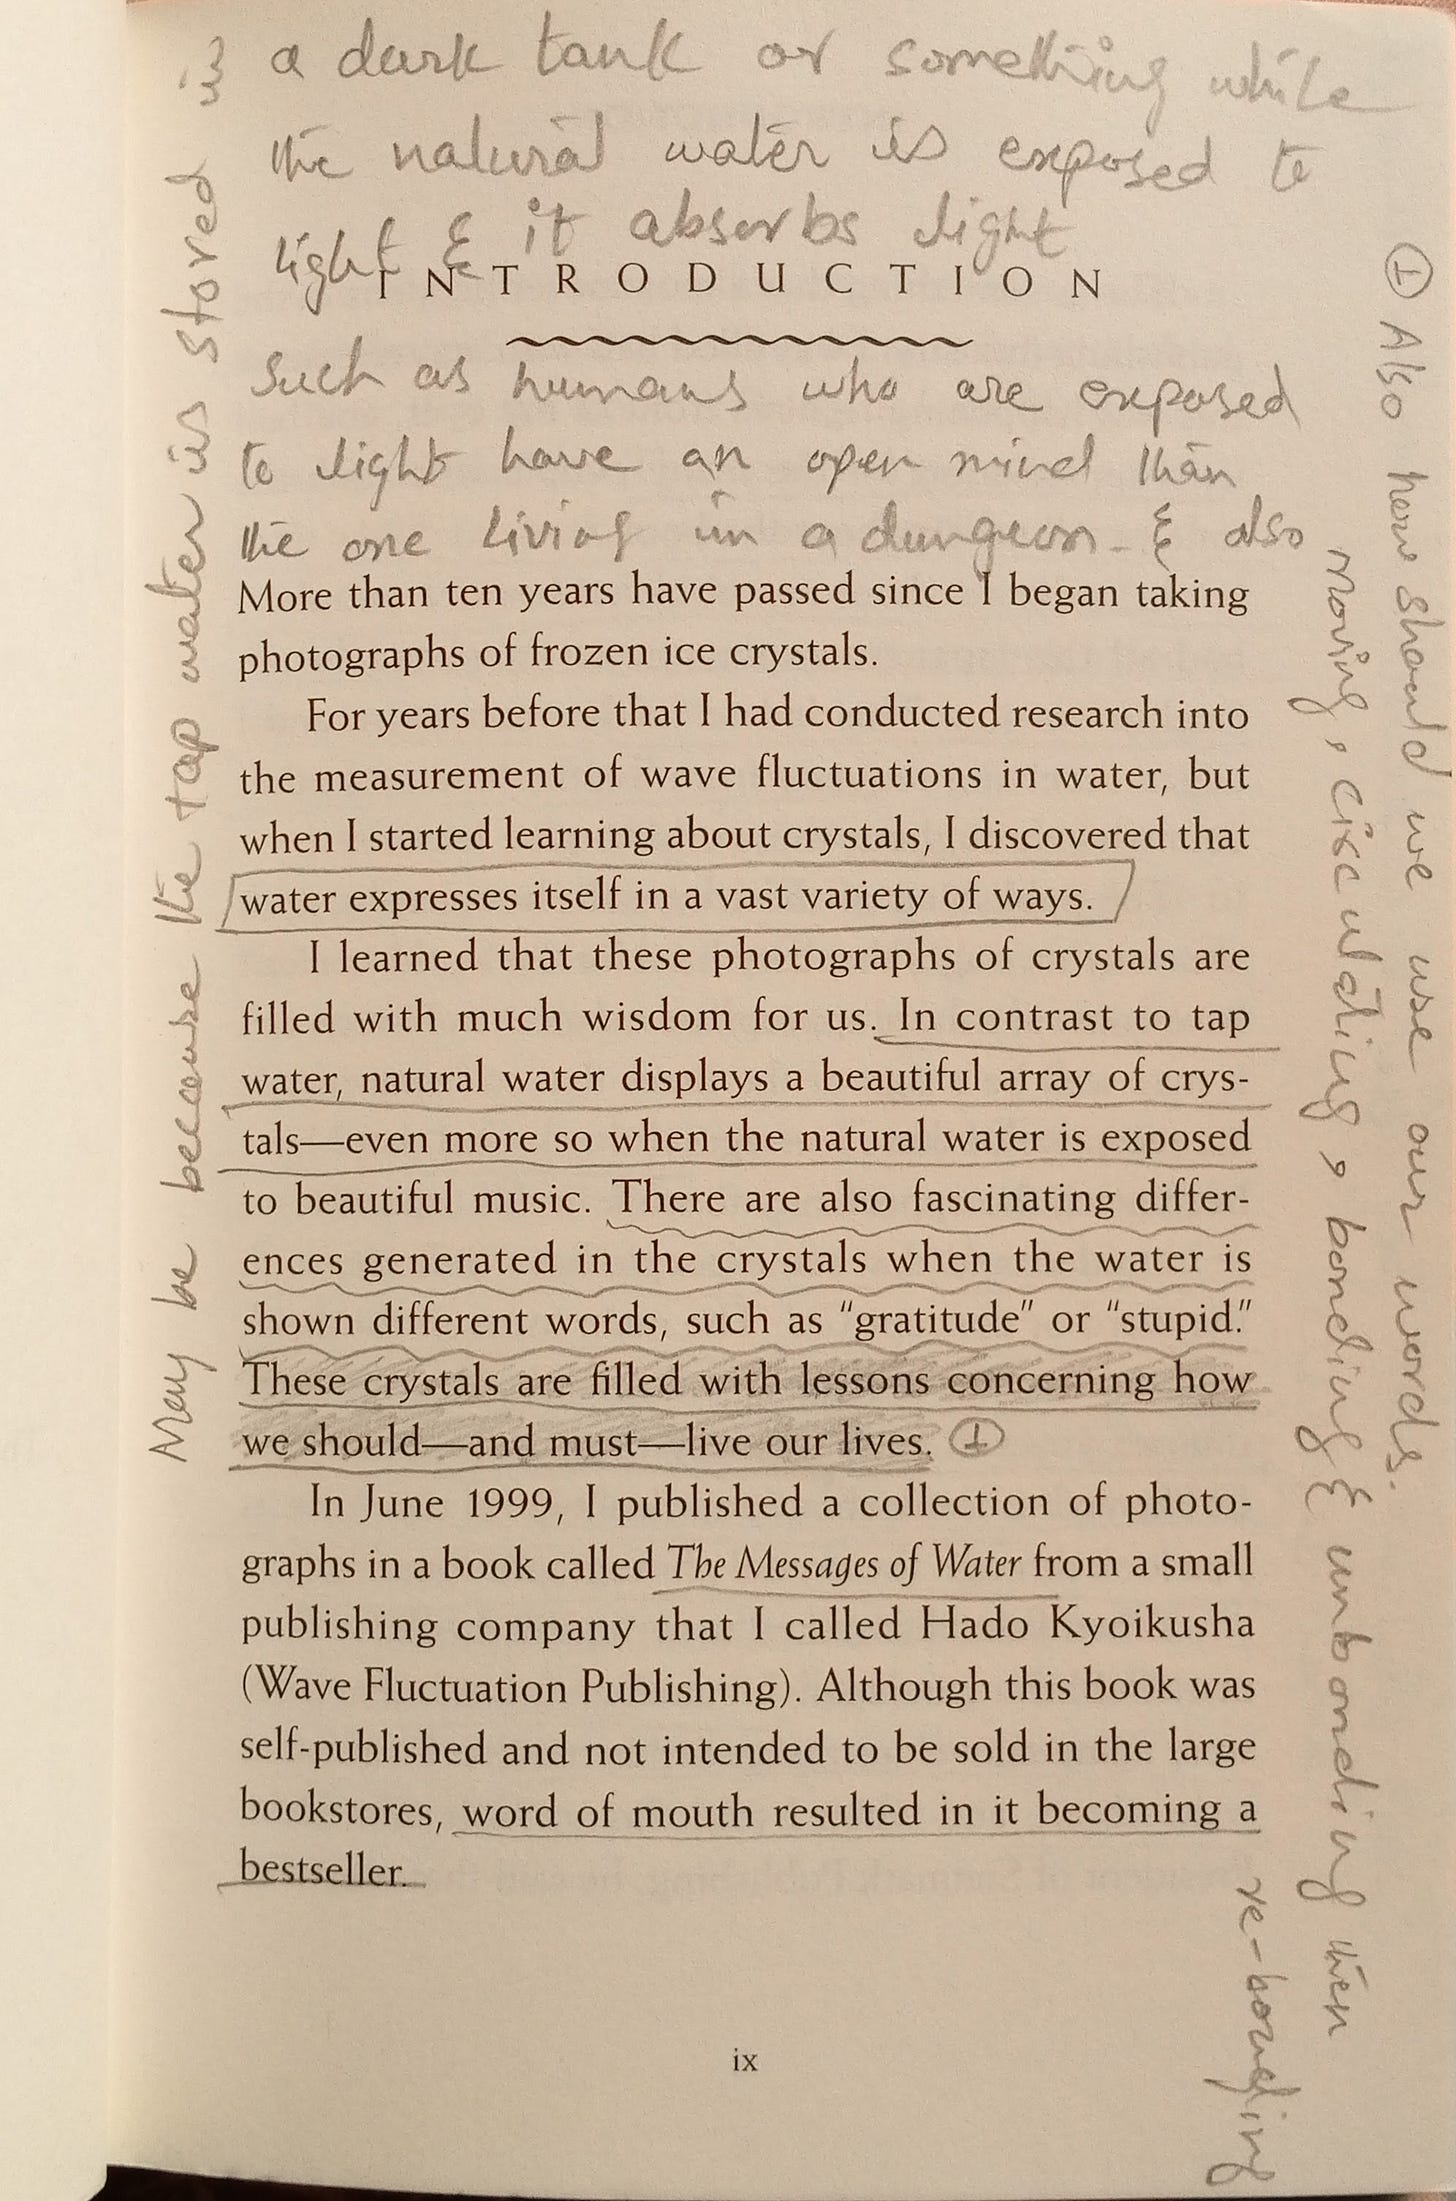 May be because the tap water is stored in
a dark tank or something while
the natural water is exposed to
light & it absorbs light
INTRODUCTION
such as humans who are exposed
to light have an open mind than
the one living in a dungeon. & also
moving, circulating, bonding & unbonding then
re-bonding
More than ten years have passed since I began taking
photographs of frozen ice crystals.
For years before that I had conducted research into
the measurement of wave fluctuations in water, but
when I started learning about crystals, I discovered that
water expresses itself in a vast variety of ways.
I learned that these photographs of crystals are
filled with much wisdom for us. In contrast to tap
water, natural water displays a beautiful array of crys-
tals—even more so when the natural water is exposed
to beautiful music. There are also fascinating differ-
ences generated in the crystals when the water is
shown different words, such as “gratitude” or “stupid.”
These crystals are filled with lessons concerning how
we should—and must—live our lives. ①
In June 1999, I published a collection of photo-
graphs in a book called The Messages of Water from a small
publishing company that I called Hado Kyoikusha
(Wave Fluctuation Publishing). Although this book was
self-published and not intended to be sold in the large
bookstores, word of mouth resulted in it becoming a
bestseller.
① Also how should we use our words.
ix